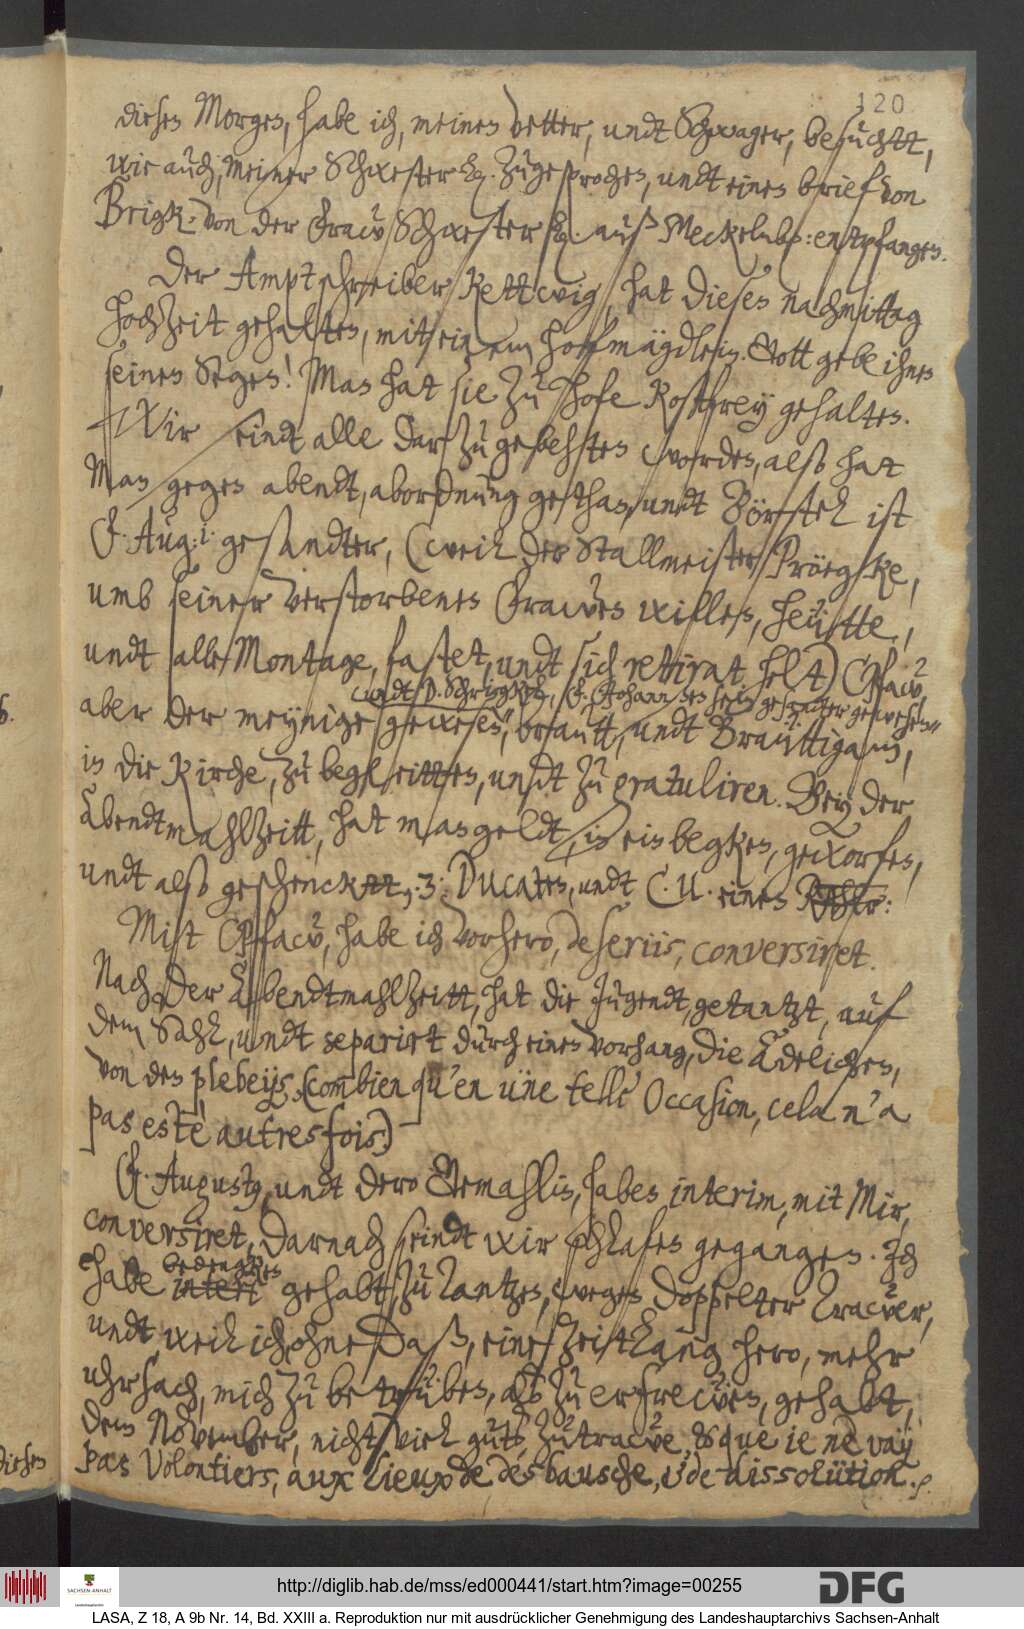 120
diesen Morgen, habe ich, meinen Vetter, undt Schwager, besuchtt,
wie auch, meiner Schwester L. zugesprochen, undt einen brief von
Brigk. Von der Fraw Schwester L. auß Meckelnb: entpfangen.
Der Amptschreiber Kettwig, hat dieses nachmittag
hochzeit gehalten, mit einem hoffmägdlein. Gott gebe ihnen
seinen Segen! Man hat sie zu hofe kostfrey gehalten.
Wir seindt alle darzu gebehten worden, alß hat
Man gegen abendt, abordnung gethan, undt Börstel ist
F. Aug: i: gesandter, (weil der Stallmeister Pröegke,
umb seiner verstorbenen Frawen willen, heütte,
undt alle Montage, fastet, undt sich retirat helt) Pfaw,
undt D. Schwigkel, F. Johannsen sein gesandter gewesen
aber der meynige gewesen, brautt, undt Breüttigam,
in die Kirche, zu begleitten, undt zu gratuliren. Bey der
Abendtmahlzeitt, hat man geldt, in ein begken, geworfen,
undt alß geschenckt, 3: Ducaten, undt C. U. einen Rthlr:
Mit Pfaw, habe ich vorhero, de seriis, conversiret.
Nach der Abendtmahlzeitt, hat die Jugendt, getantzt, auf
dem Sahl, undt separirt durch einen vorhang, die Adelichen,
von den plebeijs, (combien qu'en ùne telle Occasion, cela n'a
pas estè autresfois.)
F. Augustus, undt dero Gemahlin, haben interim, mit Mir,
conversiret, darnach seindt wir schlafen gegangen. Ich
bedengken
habe gehabt, zu Tantzen, wegen doppelter Trawer,
undt weil ich ohne daß, eine Zeitlang hero, mehr
uhrsach, mich zu betrüben, alß zu erfrewen, gehabt,
dem November, nicht viel guts, zutrawe, & que je ne vay
pas Volontiers, aux Lieux de desbausche, & de dissolution.
diesen
http://diglib.hab.de/mss/ed000441/start.htm?image=00255
SACHSEN-ANHALT
DFG
LASA, Z 18, A 9b Nr. 14, Bd. XXIII a. Reproduktion nur mit ausdrücklicher Genehmigung des Landeshauptarchivs Sachsen-Anhalt